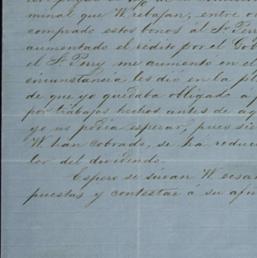 minal que W. rebajan, entre o
comprado estos bonos al Sr. Perr
aumentado el rédito por el Gob
el Sr. Perry me aumento en el
circunstancia les dió en la pl
de que yo quedaba obligado a p
por trabajos hechos antes de ag
yo no podia esperar, pues si
W. han cobrado, se ha reduc
tor del dividendo.
Espero se sirvan W.
puestas y contestar á su af